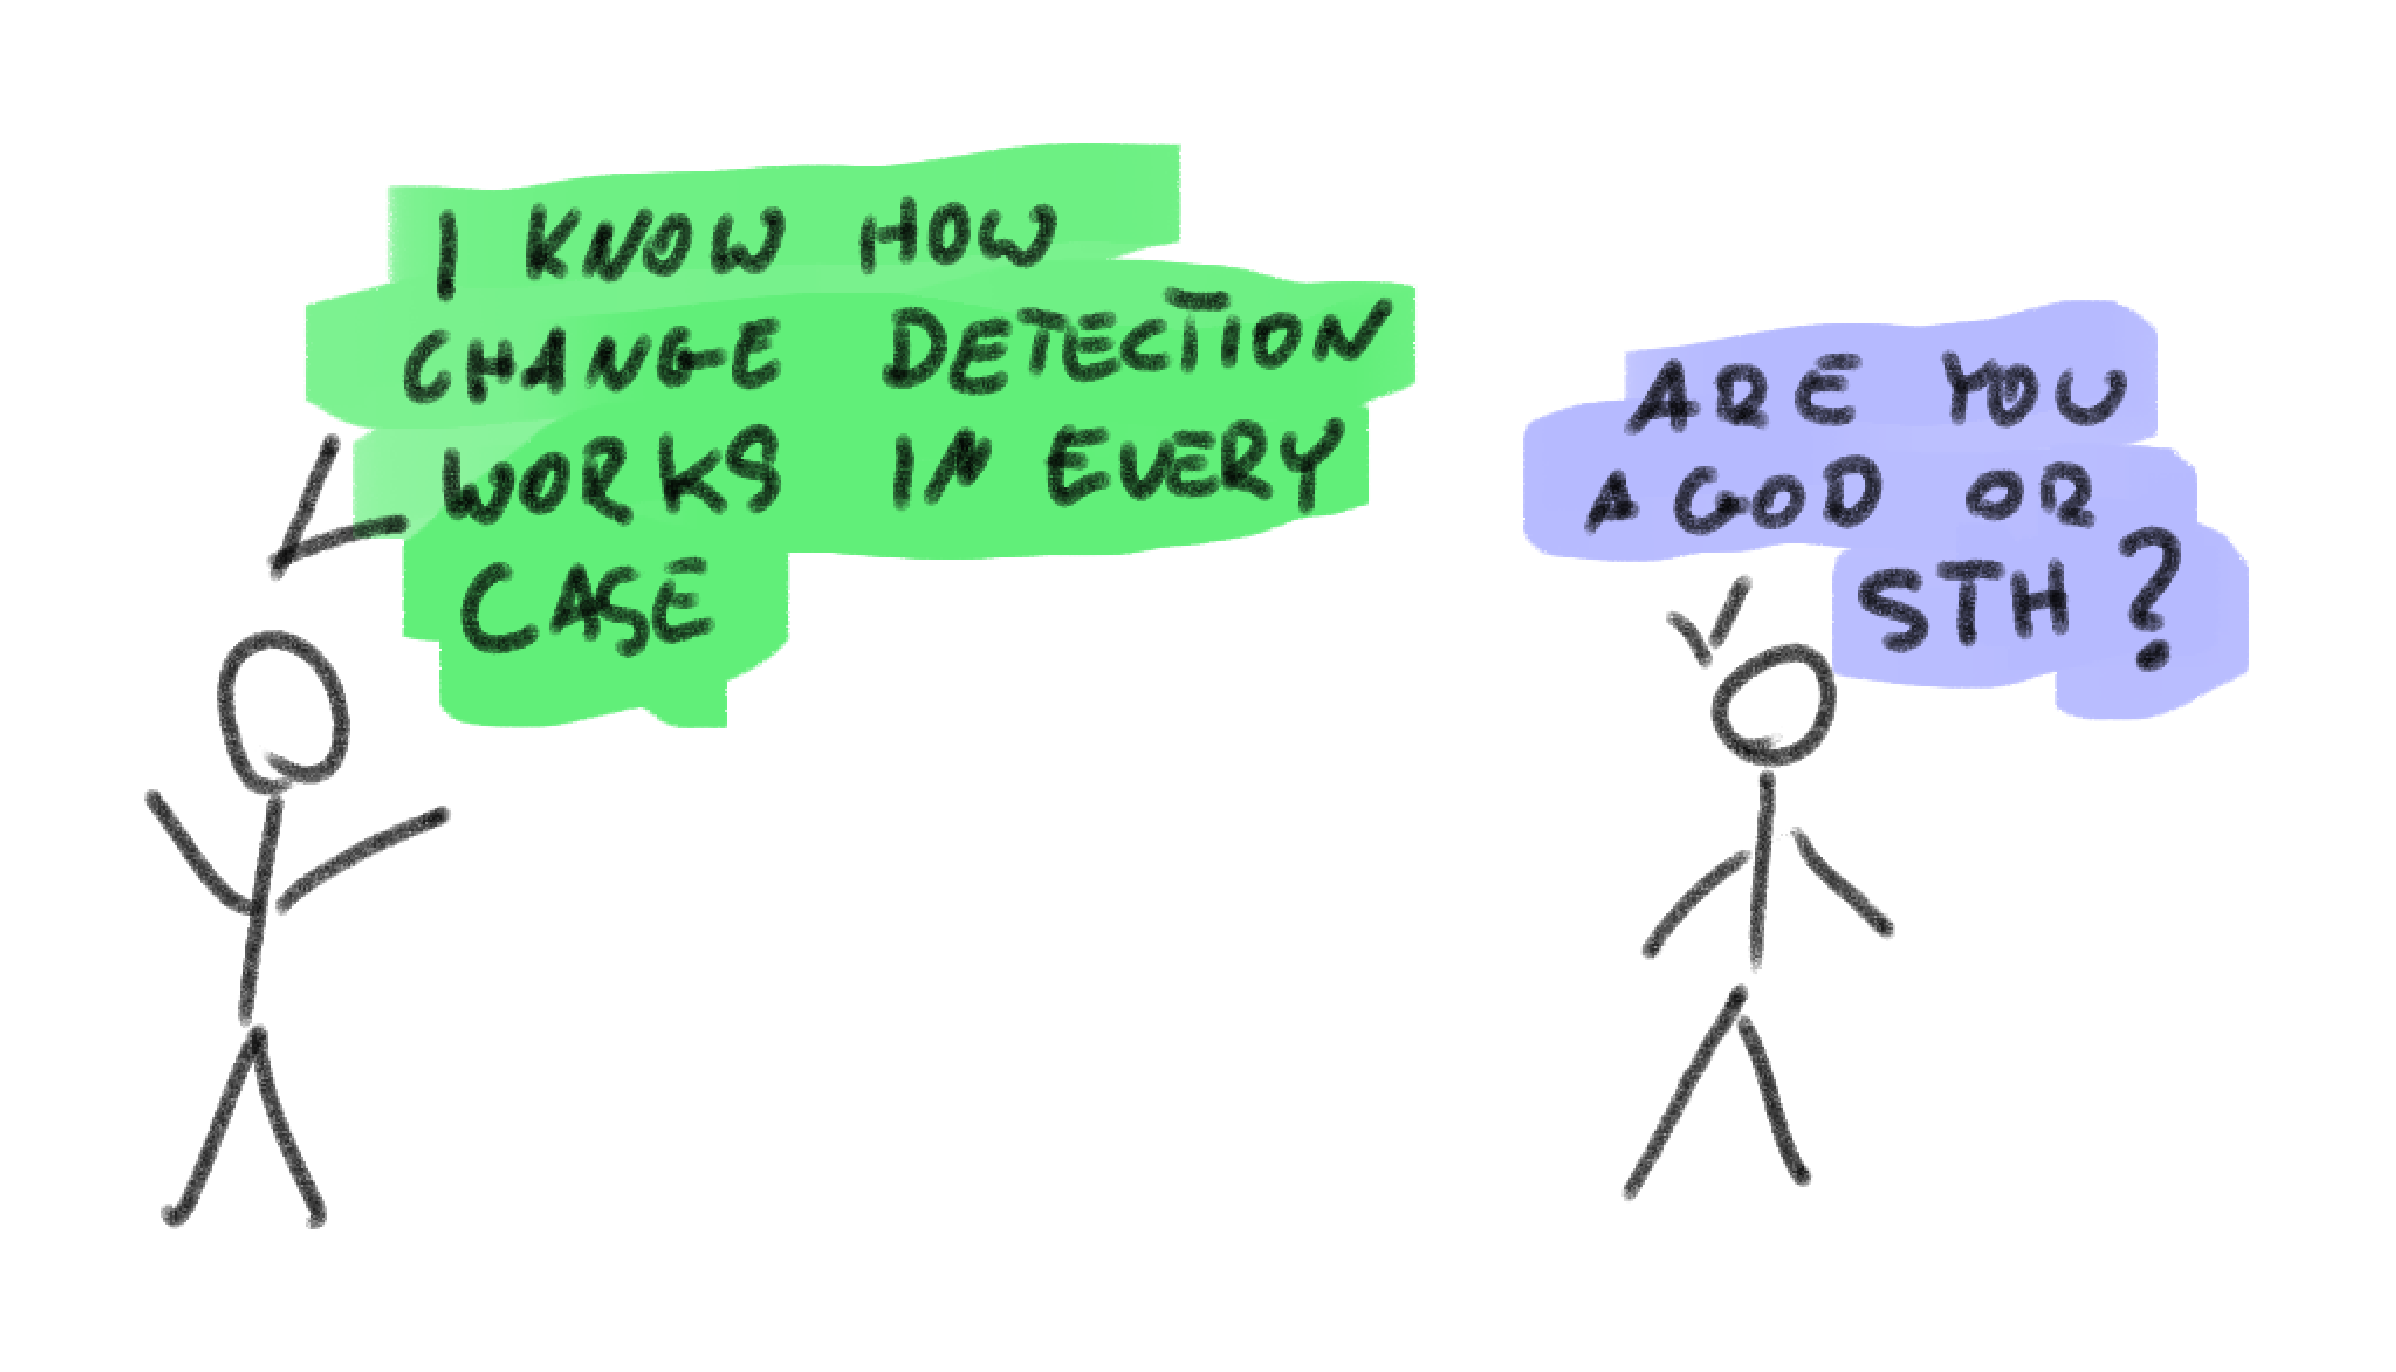 I KNOW HOW
CHANGE DETECTION
WORKS IN EVERY
CASE
ARE YOU
A GOD OR
STH?